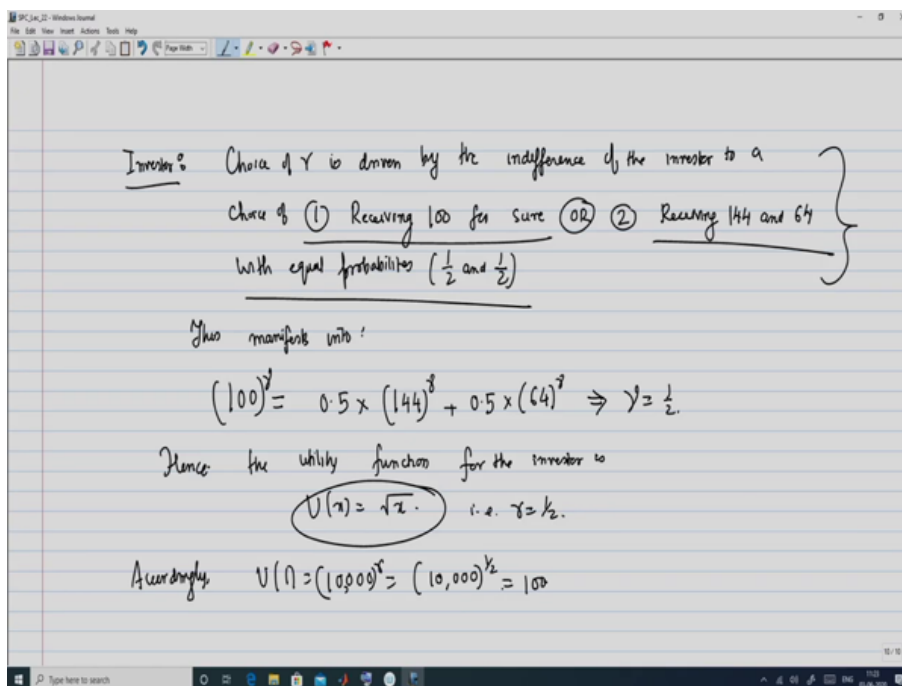 SPC_Lec_22 - Windows Journal
File Edit View Insert Actions Tools Help
Page Width
Investor: Choice of γ is driven by the indifference of the investor to a
choice of ① Receiving 100 for sure OR ② Receiving 144 and 64
with equal probabilities (1/2 and 1/2)
This manifests into :
(100)^γ = 0.5 × (144)^γ + 0.5 × (64)^γ ⇒ γ = 1/2.
Hence the utility function for the investor is
U(x) = √x. i.e. γ = 1/2.
Accordingly, U(1) = (10,000)^γ = (10,000)^1/2 = 100
10/10
Type here to search
ENG 11:23